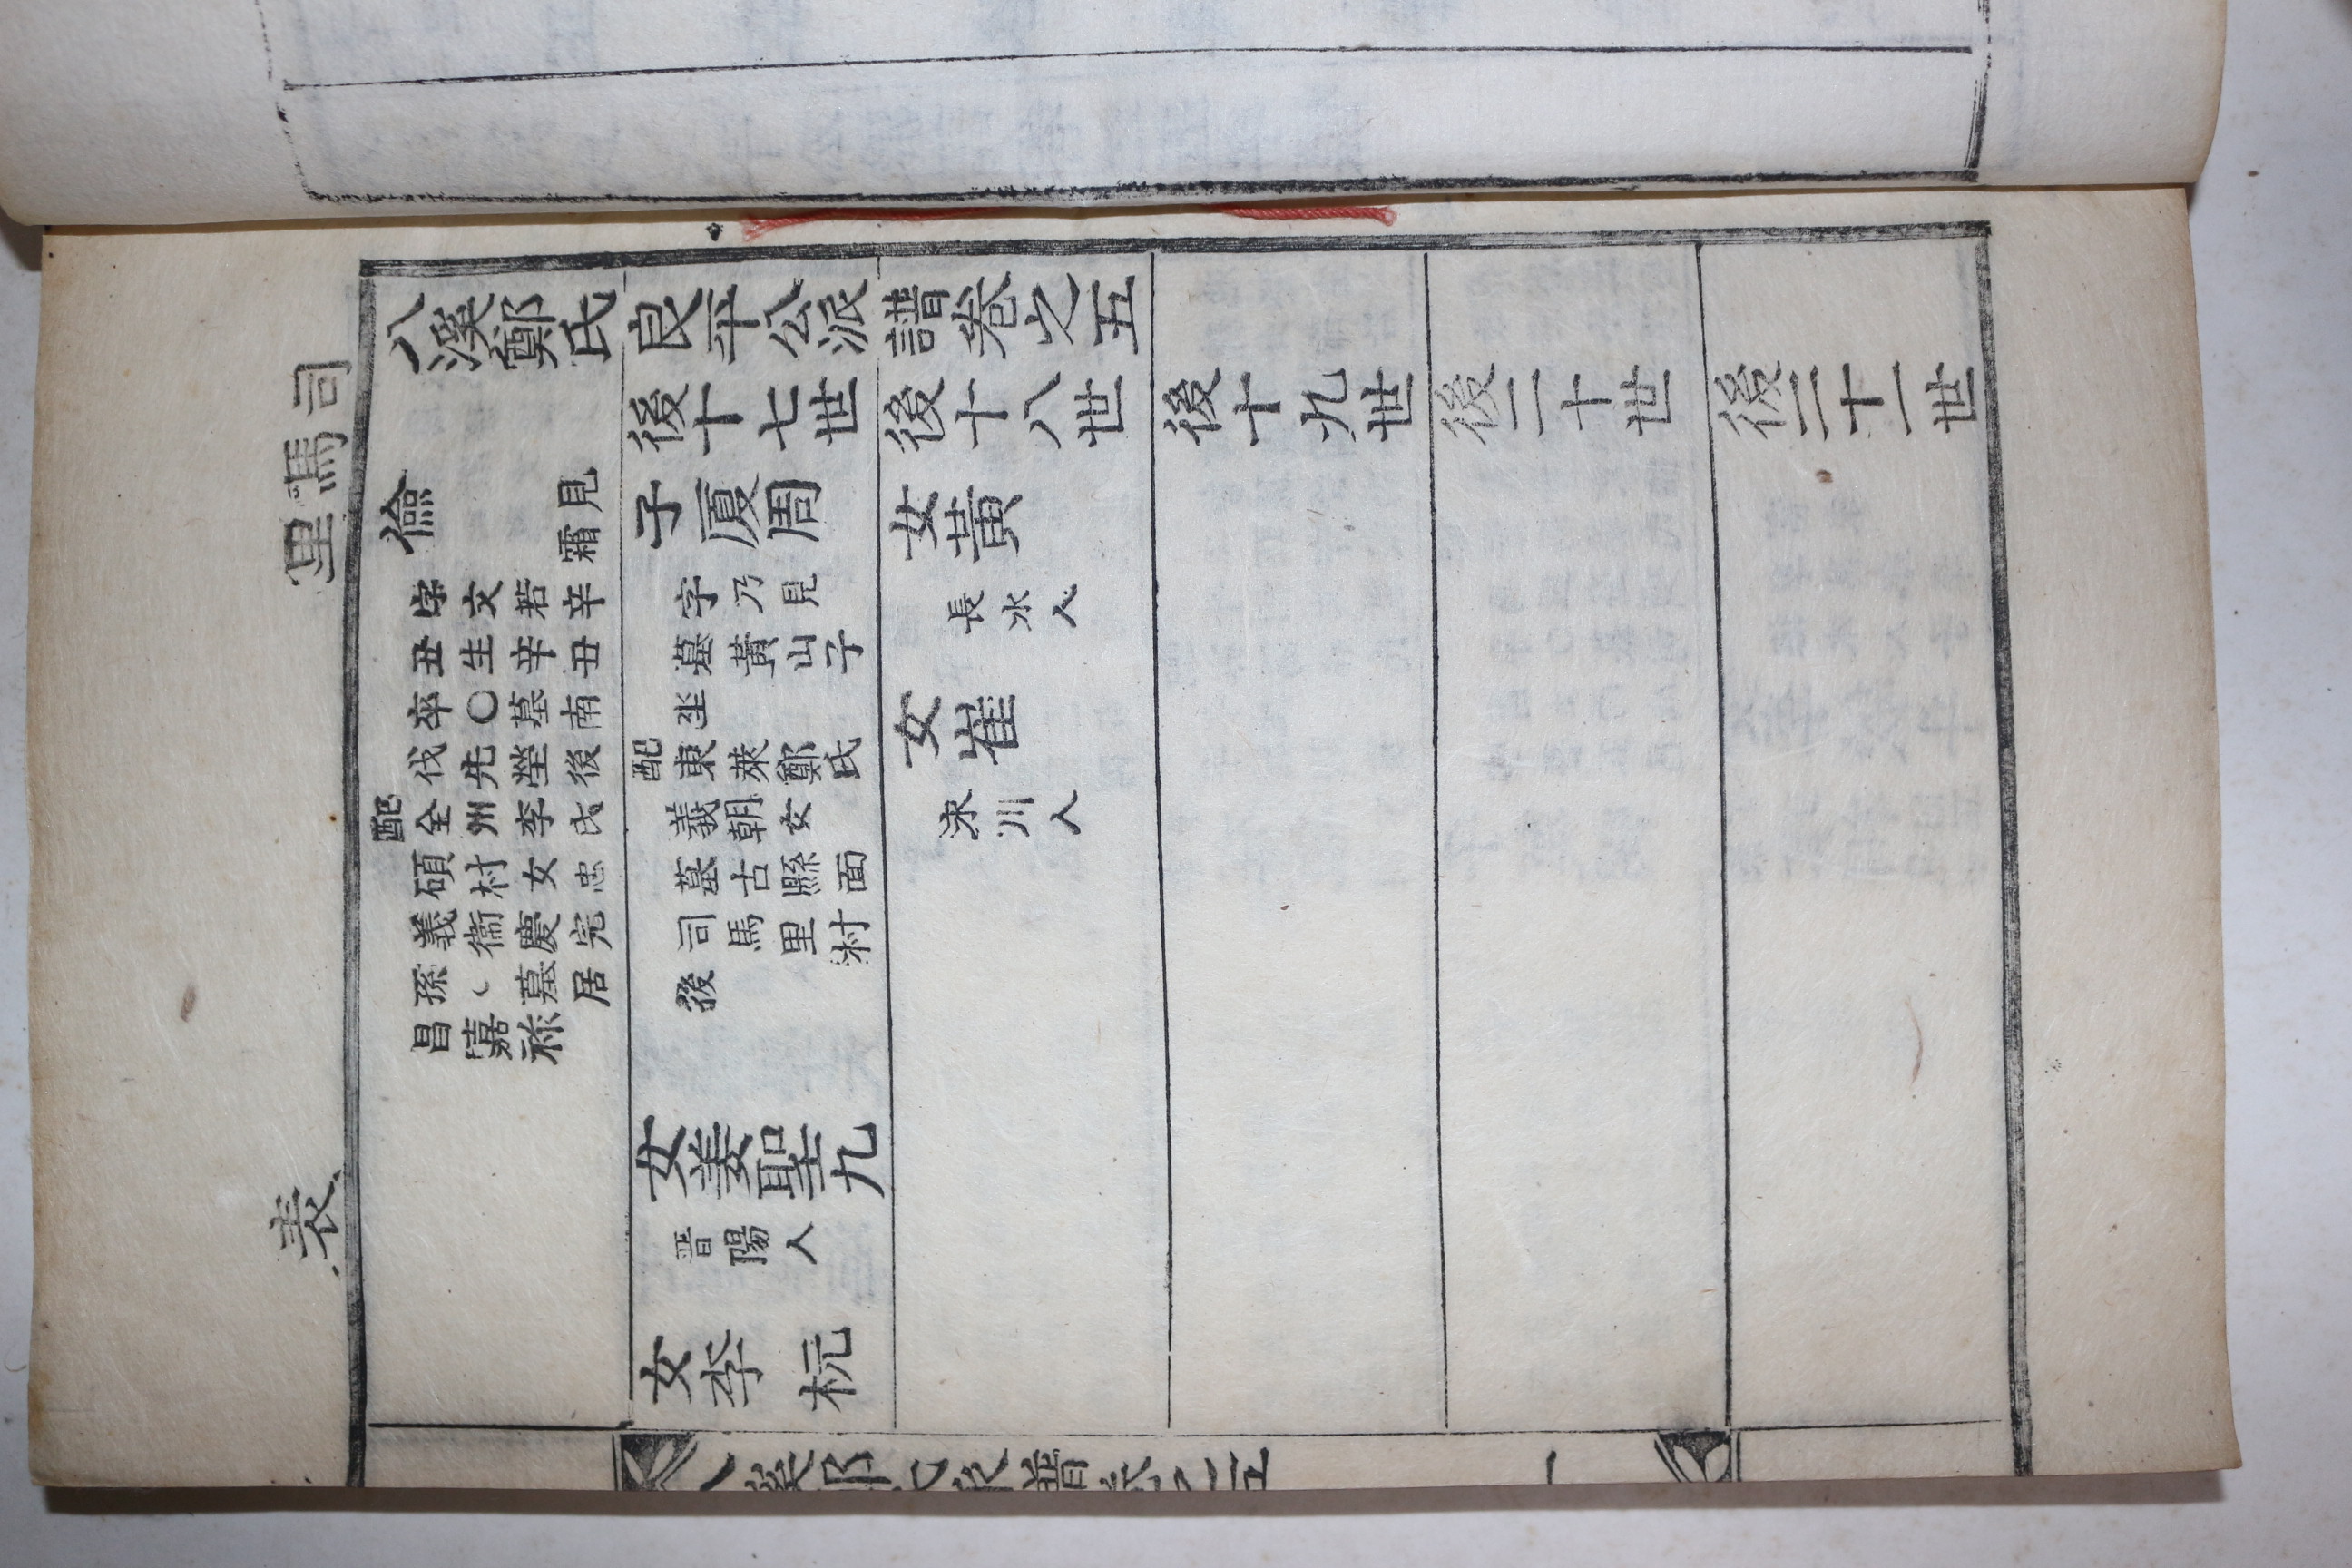 八溪鄭氏良斗公派譜卷之五
後十七世
後十八世
後十九世
後二十世
後二十一世
司馬里
儉
見
霜
字文若辛
丑生辛丑
卒○墓南
伐先塋後
配全州李氏
碩村女忠
義衛慶完
孫、墓居
昌嘉祚
子厦周
字乃見
墓黃山子
坐
配東萊鄭氏
義朝女
墓古縣面
司馬里村
後
女黃
長水人
女崔
永川人
表
女姜聖九
晋陽人
女李杬
八溪鄭氏派譜卷之五 一